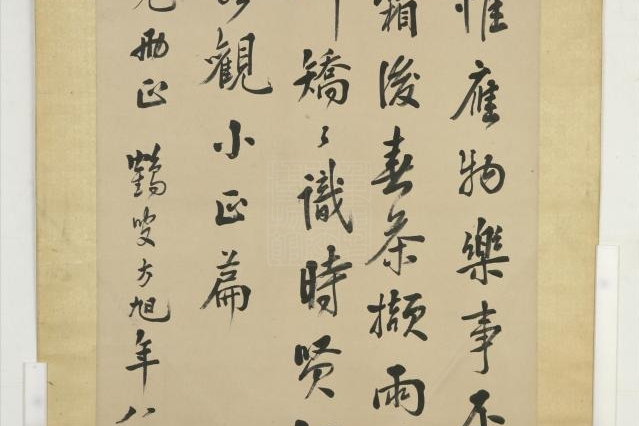 惟應物樂事不
霜後春茶擷雨
矯〻識時賢
觀小正篇
兄刪正 鶴叟方旭年八